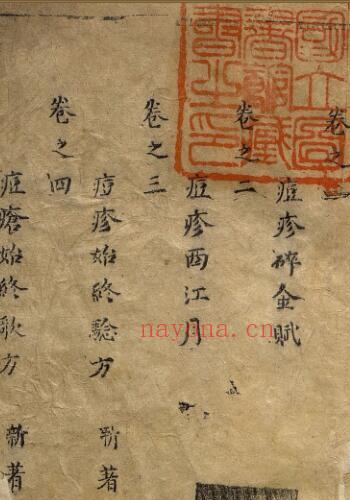 國立圖
書館藏
書之印
卷之一
痘疹碎金賦
卷之二
痘疹西江月
卷之三
痘疹始終騐方 新著
卷之四
痘瘡始終歌方 新著
nayona.cn